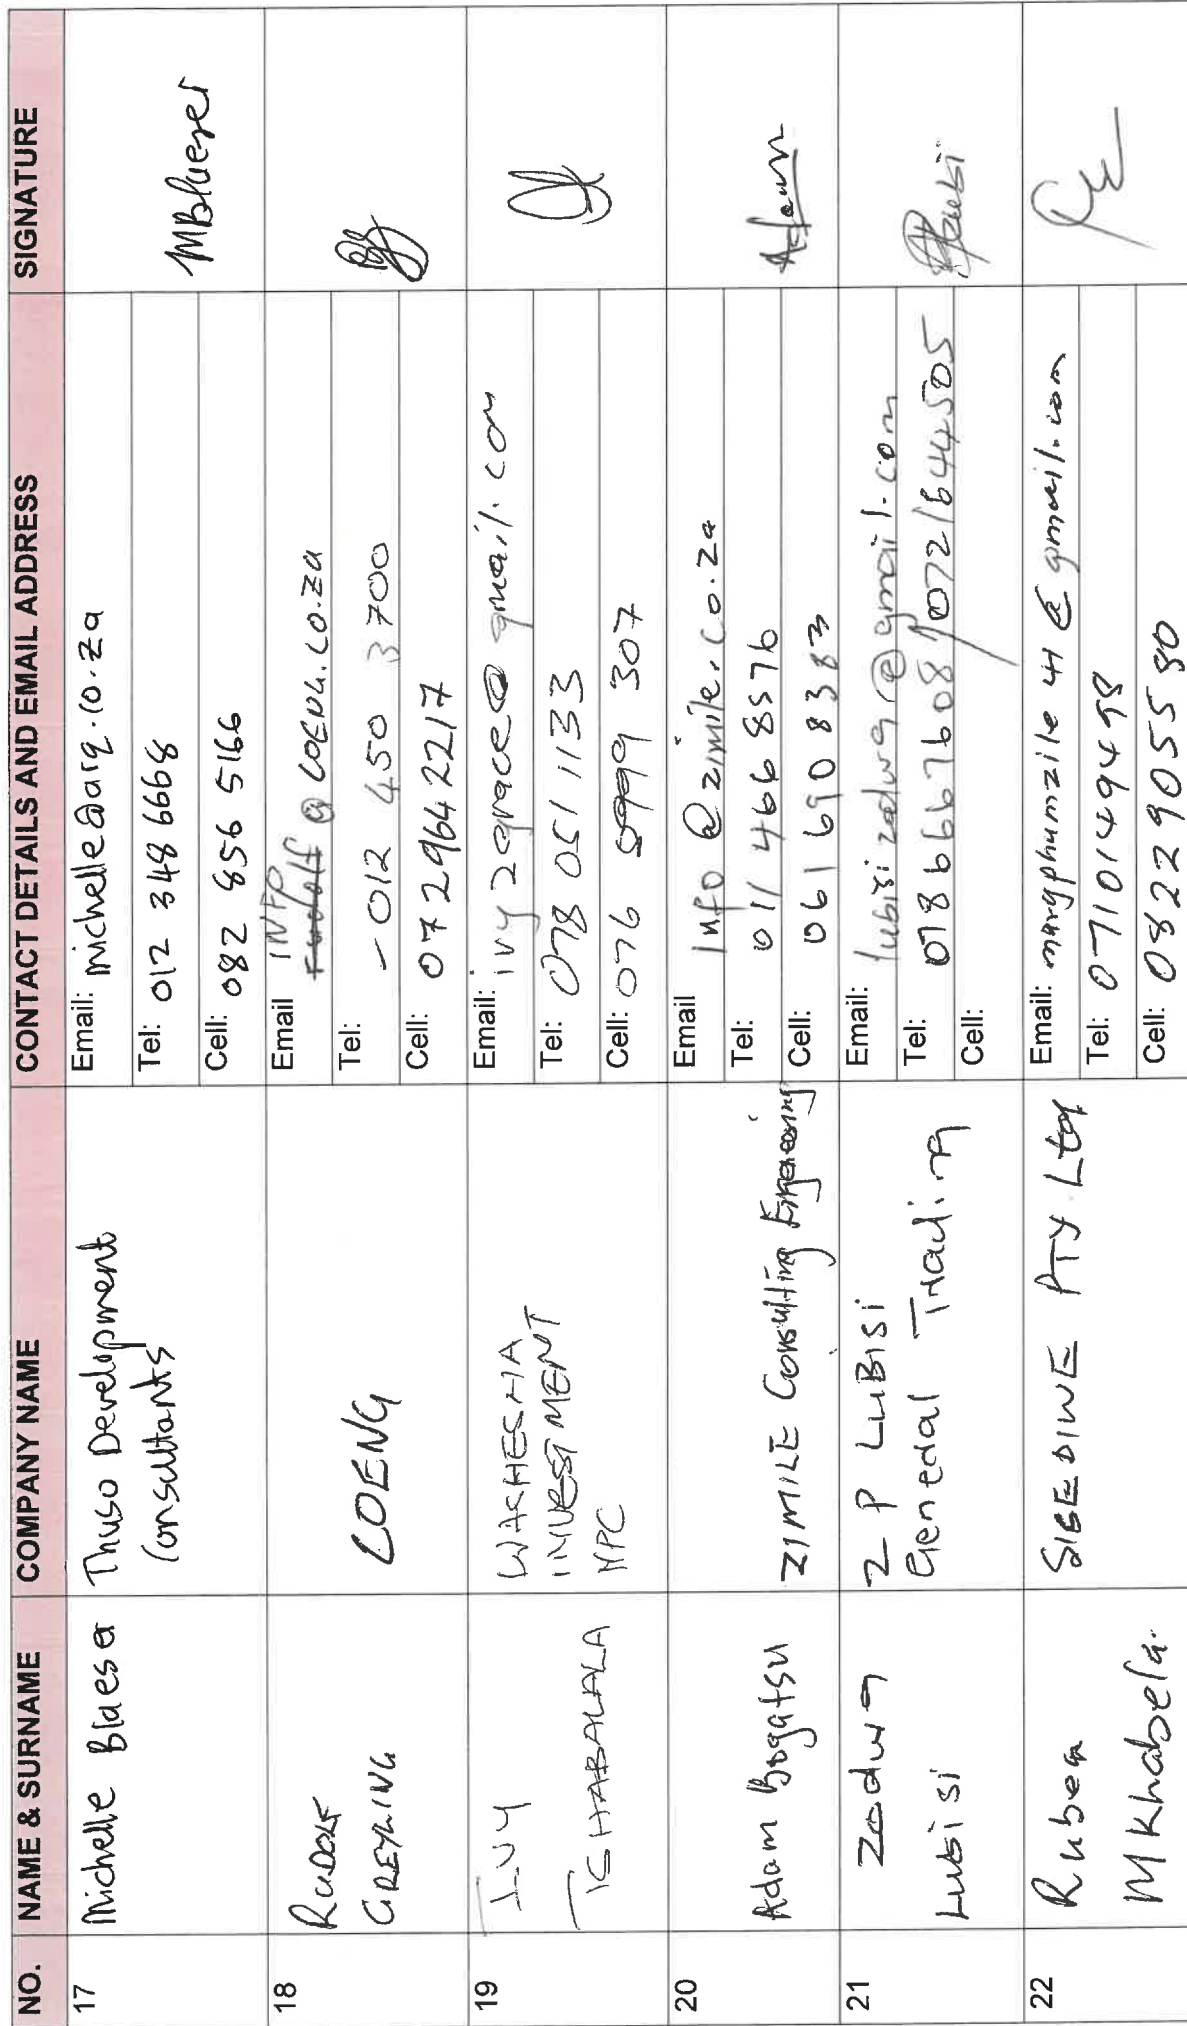 NO. NAME & SURNAME COMPANY NAME CONTACT DETAILS AND EMAIL ADDRESS SIGNATURE
17 Michelle Blaeser Thuso Development
Consultants
Email: michelle@arq.co.za
Tel: 012 348 6668
Cell: 082 856 5166
MBlaeser
18 RUDOLF
GREYLING
COENG
Email INFO @ COENG.CO.ZA
Tel: - 012 450 3700
Cell: 072 964 2217
19 IVY
TSHABALALA
WASHESHA
INVESTMENT
NPC
Email: ivy2egrace@gmail.com
Tel: 078 051 1133
Cell: 076 5999 307
20 Adam Bogatsu ZIMILE Consulting Engineering
Email Info@zimile.co.za
Tel: 011 466 8576
Cell: 061 690 8383
Adam
21 Zodwa
Lubisi
Z P LUBISI
General Trading
Email: lubisizodwa@gmail.com
Tel: 0786667608/0721644505
Cell:
22 Ruben
Mkhabela
SIBEDIWE PTY Ltd
Email: margphumzile41@gmail.com
Tel: 0710149498
Cell: 0822905580